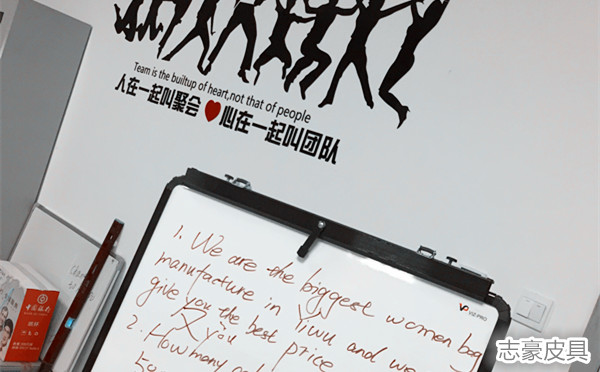 Team is the builtup of heart,not that of people
人在一起叫聚会 心在一起叫团队
1. We are the biggest women bag
manufacture in Yiwu and we
give you the best price
you
2. How many
志豪皮具